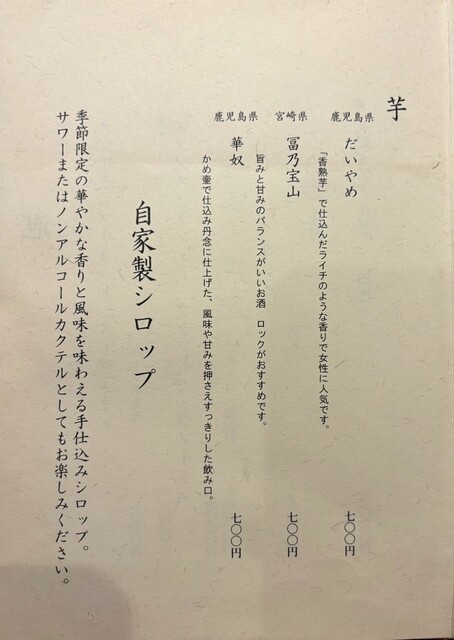 芋
鹿児島県 だいやめ 七〇〇円
「香熟芋」で仕込んだライチのような香りで女性に人気です。
宮崎県 冨乃宝山 七〇〇円
旨みと甘みのバランスがいいお酒 ロックがおすすめです。
鹿児島県 華奴 七〇〇円
かめ壷で仕込み丹念に仕上げた、風味や甘みを押さえすっきりした飲み口。
自家製シロップ
季節限定の華やかな香りと風味を味わえる手仕込みシロップ。
サワーまたはノンアルコールカクテルとしてもお楽しみください。